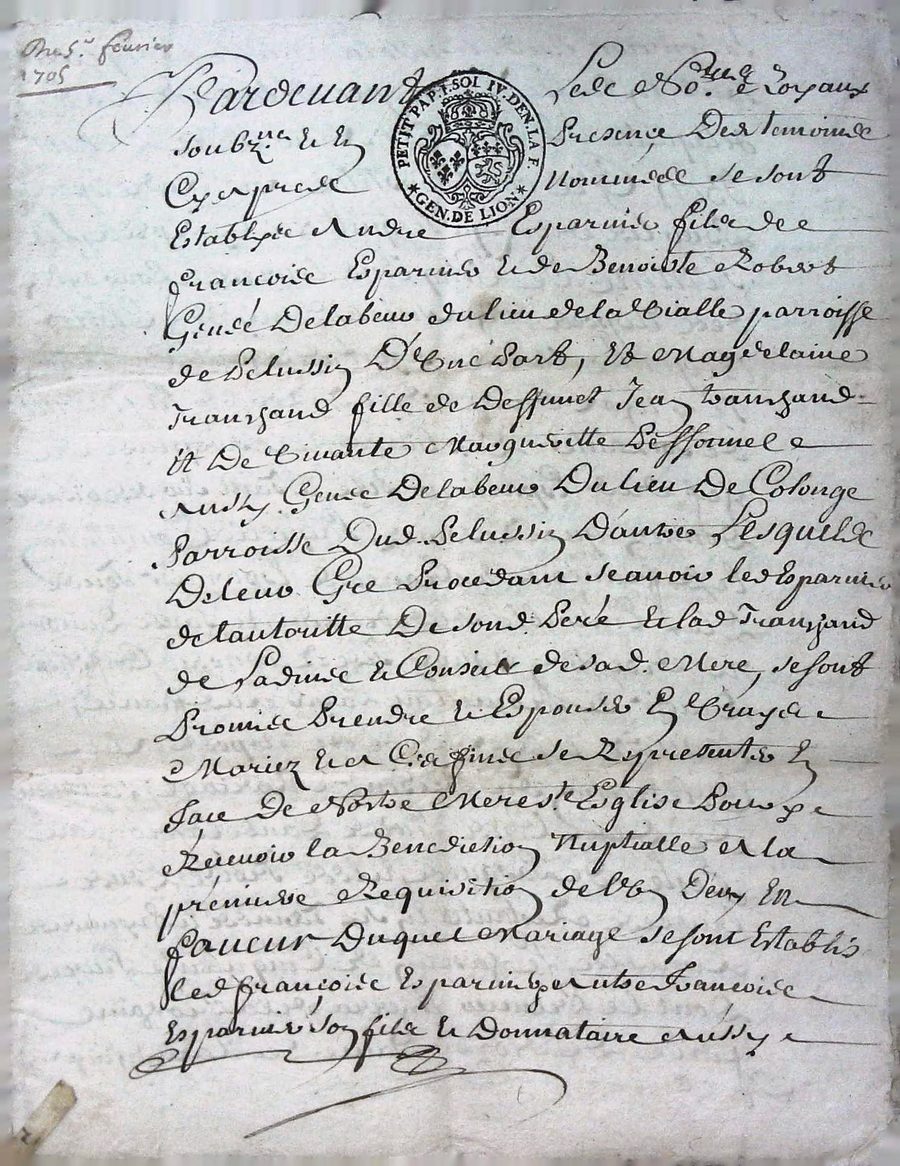 Du 5r fevrier
1705
PETIT PAP. 1. SOL IV. DEN. LA. F.
GEN. DE LION
Pardevant Les Nores Royaux
soubznes et en Presence Des temoins
Cy apres nommés se sont
Establys Andre Esparvier fils de
françois Esparvier et de Benoiste Robert
Gens De labeur du lieu de la Vialle parroisse
de Pelussin D'une Part, Et Magdelaine
Tranchand fille de Deffunct Jean tranchand
Et De Vivante Margueritte
Aussy Gens De labeur Du lieu De Colonge
Parroisse Dud. Pelussin D'autre Lesquels
De leur Gre Procedant scavoir led Esparvier
de lautoritte De sond. Pere Et lad Tranchand
de Ladvis et Conseil de sad. Mere, se sont
Promis Prendre et Espouser En Vrays
Mariez et a Ces fins se Representer En
face De Nostre Mere ste Eglise Pour y
Recevoir la Benediction Nuptialle a la
premiere Requisition de l'un Deux En
faveur Duquel Mariage se sont Establis
led françois Esparvier autre françois
Esparvier son fils et Donnataire Aussy